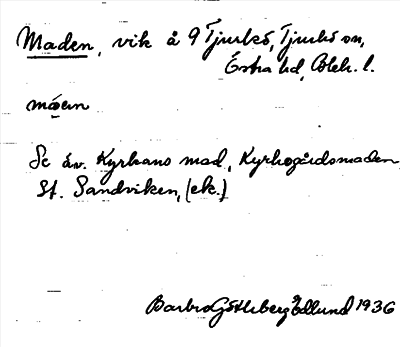 Maden, vik å 9 Tjurkö, Tjurkö sn,
Östra hd, Blek. l.
måен
Se äv. Kyrkans mad, Kyrkogårdsmaden,
St. Sandviken, (ek.)
Barbro Götleberg Edlund 1936